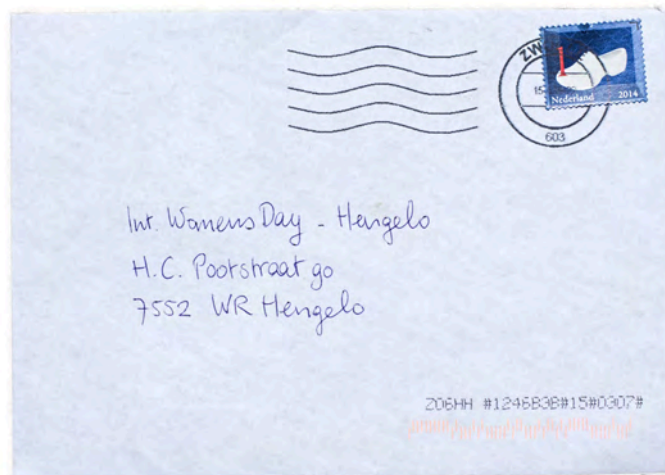 Nederland 2014
603
Int. Womens Day - Hengelo
H.C. Pootstraat 90
7552 WR Hengelo
Z06HH #1246B3B#15#0307#